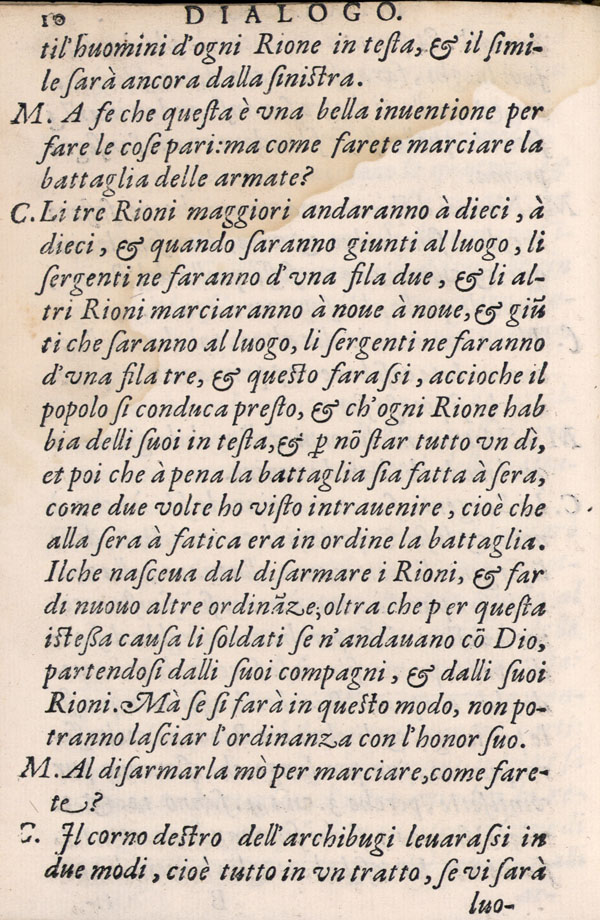 10 DIALOGO.
til'huomini d'ogni Rione in testa, & il simi-
le sarà ancora dalla sinistra.
M. A fe che questa è vna bella inuentione per
fare le cose pari: ma come farete marciare la
battaglia delle armate?
C. Li tre Rioni maggiori andaranno à dieci, à
dieci, & quando saranno giunti al luogo, li
sergenti ne faranno d'vna fila due, & li al-
tri Rioni marciaranno à noue à noue, & giũ
ti che saranno al luogo, li sergenti ne faranno
d'vna fila tre, & questo farassi, accioche il
popolo si conduca presto, & ch'ogni Rione hab
bia delli suoi in testa, & ꝑ nõ star tutto vn dì,
et poi che à pena la battaglia sia fatta à sera,
come due volte ho visto intrauenire, cioè che
alla sera à fatica era in ordine la battaglia.
Ilche nasceua dal disarmare i Rioni, & far
di nuouo altre ordinãze, oltra che per questa
istessa causa li soldati se n'andauano cõ Dio,
partendosi dalli suoi compagni, & dalli suoi
Rioni. Mà se si farà in questo modo, non po-
tranno lasciar l'ordinanza con l'honor suo.
M. Al disarmarla mò per marciare, come fare-
te?
C. Il corno destro dell'archibugi leuarassi in
due modi, cioè tutto in vn tratto, se vi sarà
luo-